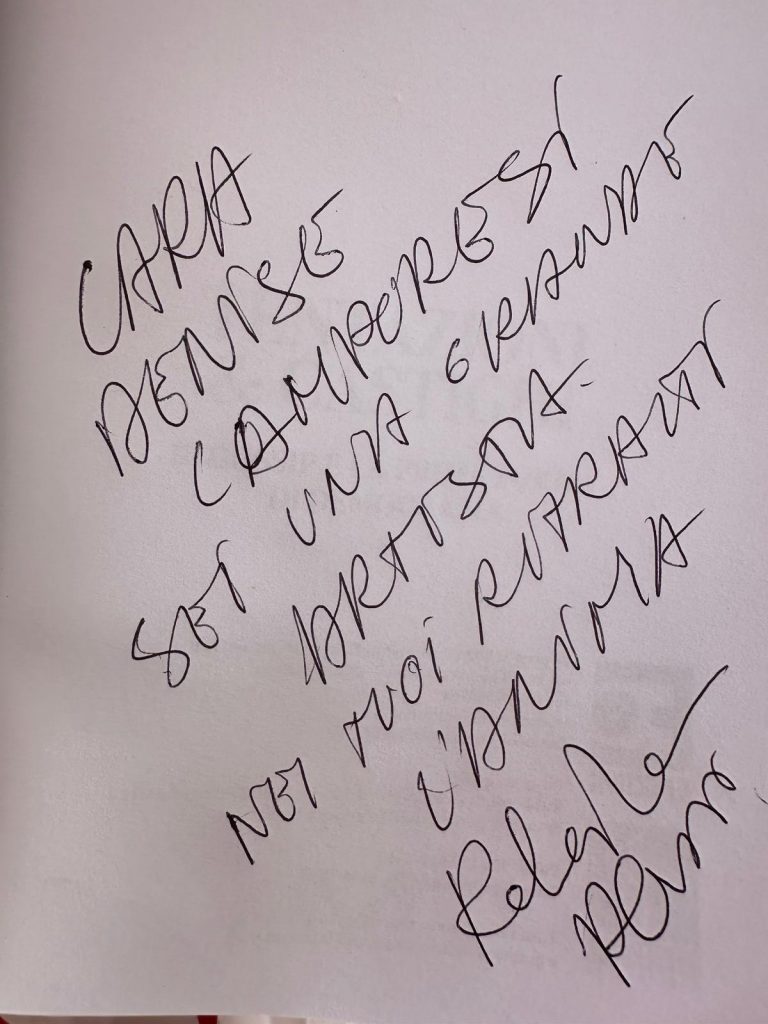 CARA
DENISE
CAMPORESI
SEI UNA GRANDE
ARTISTA.
NEI TUOI RITRATTI
L'ANIMA